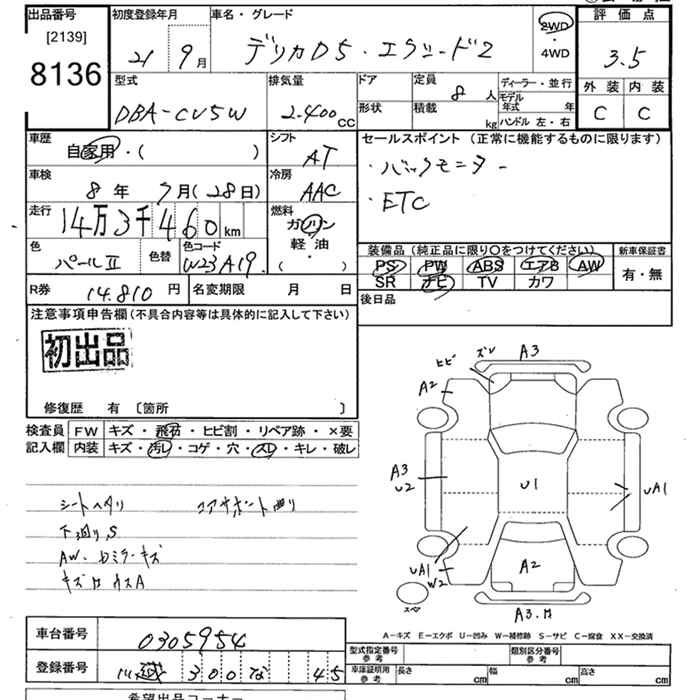 出品番号
[2139]
8136
初度登録年月
21 9月
車名・グレード
デリカD5・
2WD
・
4WD
評価点
3.5
外装 内装
C C
型式
DBA-CV5W
排気量
2.400cc
ドア
形状
定員
8人
積載
kg
ディーラー・並行
モデル年式 年
ハンドル 左・右
車歴
自家用・( )
シフト
AT
セールスポイント(正常に機能するものに限ります)
・バックモニター
・ETC
車検
8年 9月(28日)
冷房
AAC
走行
14万3千460km
燃料
ガソリン
軽・油
( )
色
パールII
色替
色コード
W23A19.
装備品(純正品に限り○をつけてください)
PS PW ABS エアB AW
SR ナビ TV カワ
新車保証書
有・無
R券
14.810円
名変期限 月 日
後日品
注意事項申告欄(不具合内容等は具体的に記入して下さい)
初出品
修復歴 有 〔箇所 〕
検査員
記入欄
FW キズ・飛石・ヒビ割・リペア跡・×要
内装 キズ・汚レ・コゲ・穴・スレ・キレ・破レ
シートヘタリ コアサポート曲リ
下廻りS
AW・
A
ヒビ
ズレ
A3
A2
A3
U2
U1
UA1
UA1
W2
A2
A3.
スペア
A-キズ E-エクボ U-凹み W-補修跡 S-サビ C-腐食 XX-交換済
車台番号
0305954
登録番号
300 な 45
型式指定番号
参考
類別区分番号
参考
車庫証明用
参考
長さ cm
幅 cm
高さ cm
希望出品コーナー